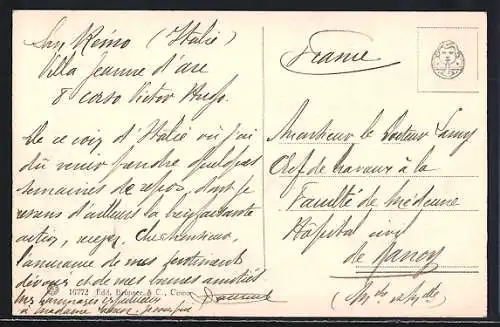 San Remo (Italie)
Villa Jeanne d'arc
8 corso Victor Hugo.
De ce coin d'Italie où j'ai
dû venir prendre quelques
semaines de repos, dont je
ressens d'ailleurs la bienfaisante
action, , cher Monsieur,
l'assurance de mes sentiments
dévoués et de mes bonnes amitiés
mes hommages
à madame
16772 Edit. Brunner & C., Como
France
Monsieur le Docteur Lamy
Chef de travaux à la
Faculté de médecine
Hôpital civil
de Nancy
(Mthe et Mlle)